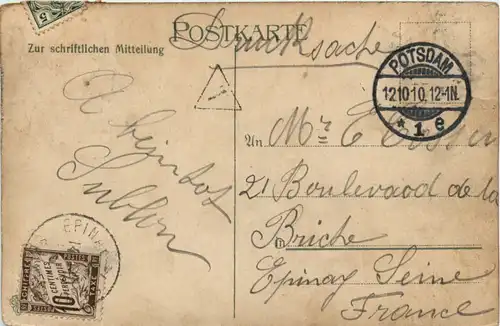 POSTKARTE
Drucksache
Zur schriftlichen Mitteilung
5
POTSDAM
12.10.10. 12-1N.
* 1 e
A bientot
An Mr E
21 Boulevard de la
Briche
Epinay Seine
France
EPINAY
CHIFFRE
POSTES
TAXE
10
CENTIMES
A PERCEVOIR